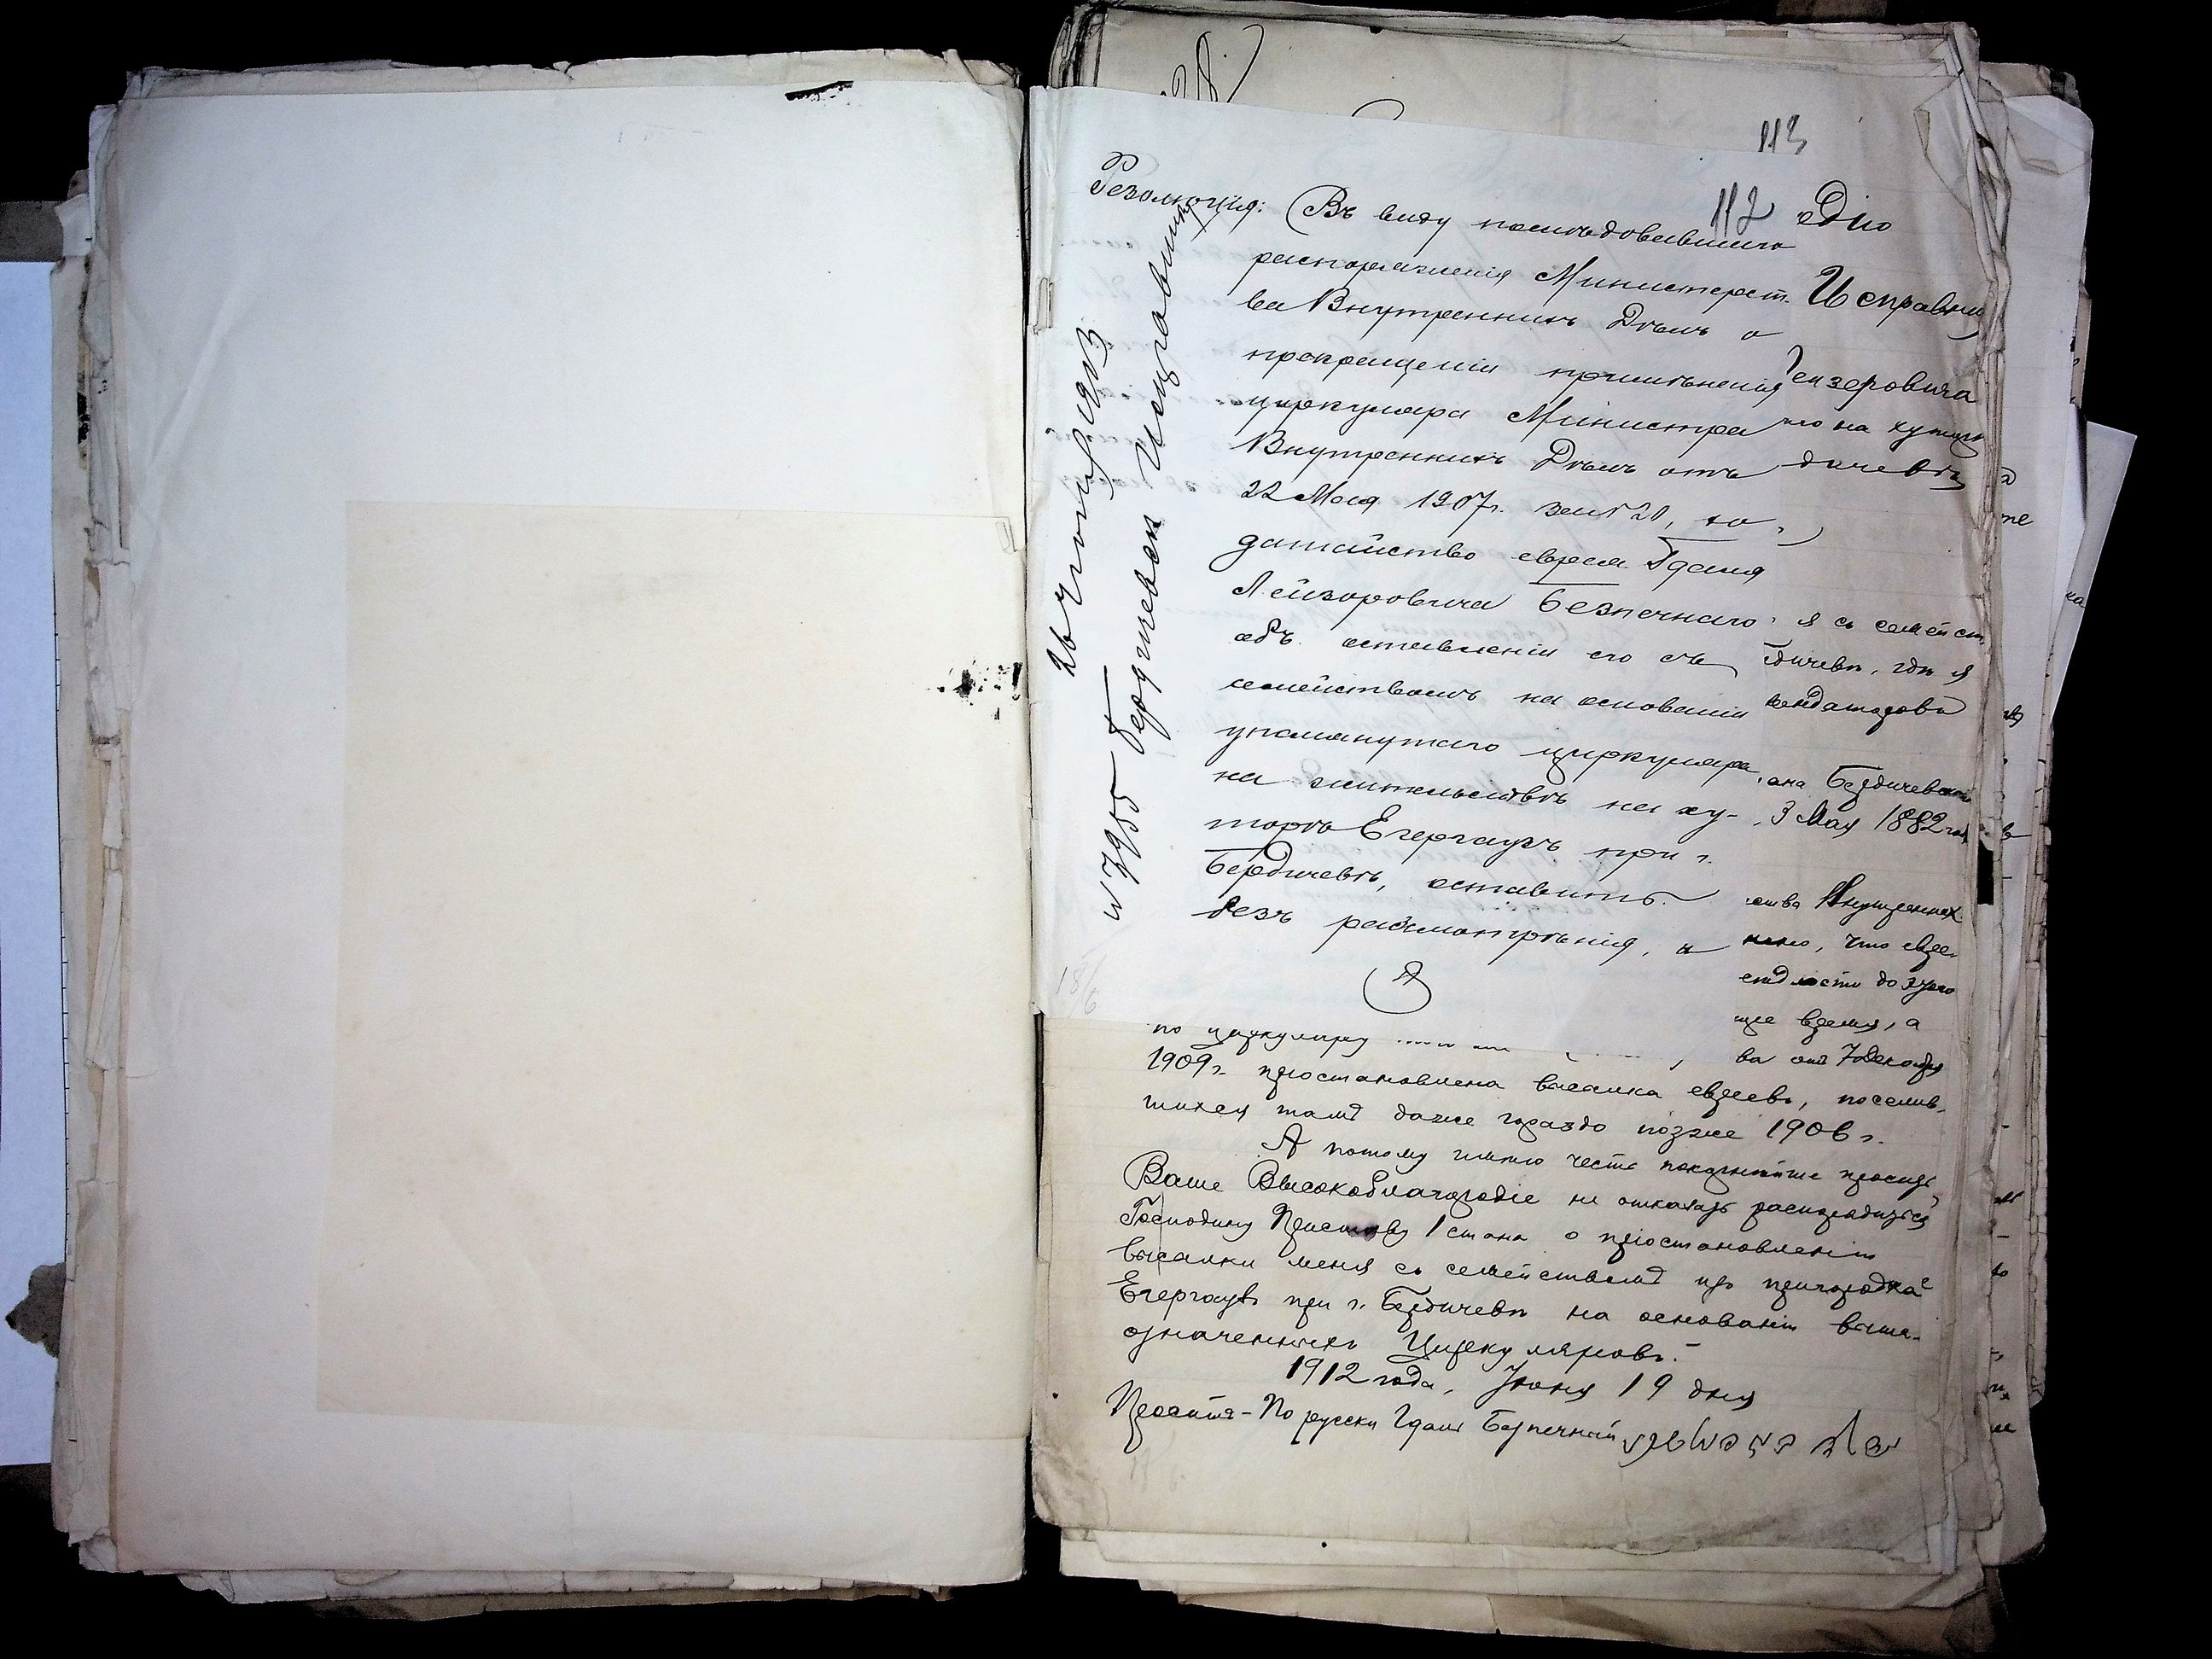 113
112
Резолюція: Въ виду послѣдовавшаго
распоряженія Министерст-
ва Внутреннихъ Дѣлъ о
прекращеніи примѣненія
циркуляра Министра
Внутреннихъ Дѣлъ отъ
22 Мая 1907г. за №20, хо-
датайство еврея Гдаля
Лейзоровича Безпечнаго
объ оставленіи его съ
семействомъ на основаніи
упомянутаго циркуляра
на жительствѣ на ху-
торѣ Егергаузъ при г.
Бердичевѣ, оставить
безъ разсмотрѣнія.
№ 7955 Бердичевск Исправнику
1913
18/6
едію
Исправни
ейзеровича
го на хуторѣ
дичевѣ
я съ семейст
дичевѣ, гдѣ я
ана Бердичевска
3 Мая 1882 год
ства Внутреннех
что евре
до этого
щее время, а
ва отъ 7 Декабря
по циркуляру
1909 г. простановлена высылка евреевъ, поселив-
шихся тамъ даже гораздо позже 1906 г.
А потому имѣю честь покорнѣйше просить
Ваше Высокоблагородіе не отказать распорядиться
Господину Приставу 1 стана о простановленіи
высылки меня съ семействомъ изъ пригородка
Егергаузъ при г. Бердичевѣ на основаніи выше-
означенныхъ Циркуляровъ.
1912 года, Іюня 19 дня
По русски Гдаль Безпечный